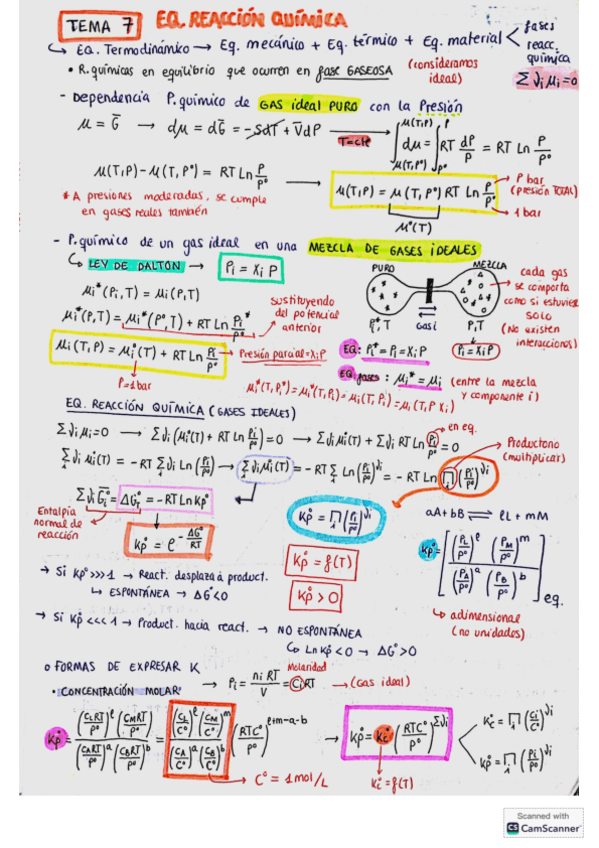 TEMA 7 EQ. REACCIÓN QUÍMICA
↳ EQ. Termodinámico → Eq. mecánico + Eq. térmico + Eq. material < fases
reacc. química
Σ νi μi = 0
• R. químicas en equilibrio que ocurren en fase GASEOSA (consideramos ideal)
- Dependencia P. químico de GAS ideal PURO con la Presión
μ = G̅ → dμ = dG̅ = -S̅dT + V̅dP → T=cte ∫ dμ = ∫ RT dP/P = RT Ln P/P°
μ(T,P)
μ(T,P°)
P
P°
μ(T,P) - μ(T,P°) = RT Ln P/P° → μ(T,P) = μ(T,P°) RT Ln P/P°
P bar (presión TOTAL)
1 bar
μ°(T)
* A presiones moderadas, se cumple en gases reales también
- P. químico de un gas ideal en una MEZCLA DE GASES IDEALES
↳ LEY DE DALTON → Pi = Xi P
PURO
MEZCLA
Pi*, T
Gas i
P,T
cada gas se comporta como si estuviera solo (No existen interacciones)
μi*(Pi,T) = μi(P,T)
μi*(P,T) = μi*(P°,T) + RT Ln Pi*/P°
sustituyendo del potencial anterior
μi(T,P) = μi°(T) + RT Ln Pi/P° → Presión parcial = Xi P
P = 1 bar
EQ: Pi* = Pi = Xi P
Pi = Xi P
EQ fases: μi* = μi (entre la mezcla y componente i)
μi*(T,Pi*) = μi*(T,Pi) = μi(T,Pi) = μi(T,P Xi)
EQ. REACCIÓN QUÍMICA (GASES IDEALES)
Σ νi μi = 0 → Σ νi (μi°(T) + RT Ln Pi/P°) = 0 → Σ νi μi°(T) + Σ νi RT Ln Pi/P° = 0
en eq.
Σ νi μi°(T) = -RT Σ νi Ln (Pi/P°) → Σ νi μi°(T) = -RT Σ Ln (Pi/P°)^νi = -RT Ln Π (Pi/P°)^νi
Productorio (multiplicar)
Σ νi G̅i° = ΔGr° = -RT Ln Kp°
Entalpía normal de reacción
Kp° = e^-ΔG°/RT
Kp° = Π (Pi/P°)^νi
Kp° = f(T)
Kp° > 0
aA + bB ⇌ lL + mM
Kp° = [ (PL/P°)^l (PM/P°)^m / (PA/P°)^a (PB/P°)^b ] eq.
↳ adimensional (no unidades)
→ Si Kp° >>> 1 → React. desplaza a product.
↳ ESPONTÁNEA → ΔG° < 0
→ Si Kp° <<< 1 → Product. hacia react. → NO ESPONTÁNEA
↳ Ln Kp° < 0 → ΔG° > 0
o FORMAS DE EXPRESAR K
• CONCENTRACIÓN MOLAR → Pi = ni RT/V = Ci RT → (Gas ideal)
Molaridad
Kp° = (CLRT/P°)^l (CMRT/P°)^m / (CART/P°)^a (CBRT/P°)^b = (CL/C°)^l (CM/C°)^m / (CA/C°)^a (CB/C°)^b (RTC°/P°)^l+m-a-b → Kp° = Kc° (RTC°/P°)^Σνi < Kc° = Π (Ci/C°)^νi
Kp° = Π (Pi/P°)^νi
C° = 1 mol/L
Kc° = f(T)
Scanned with
CS CamScanner